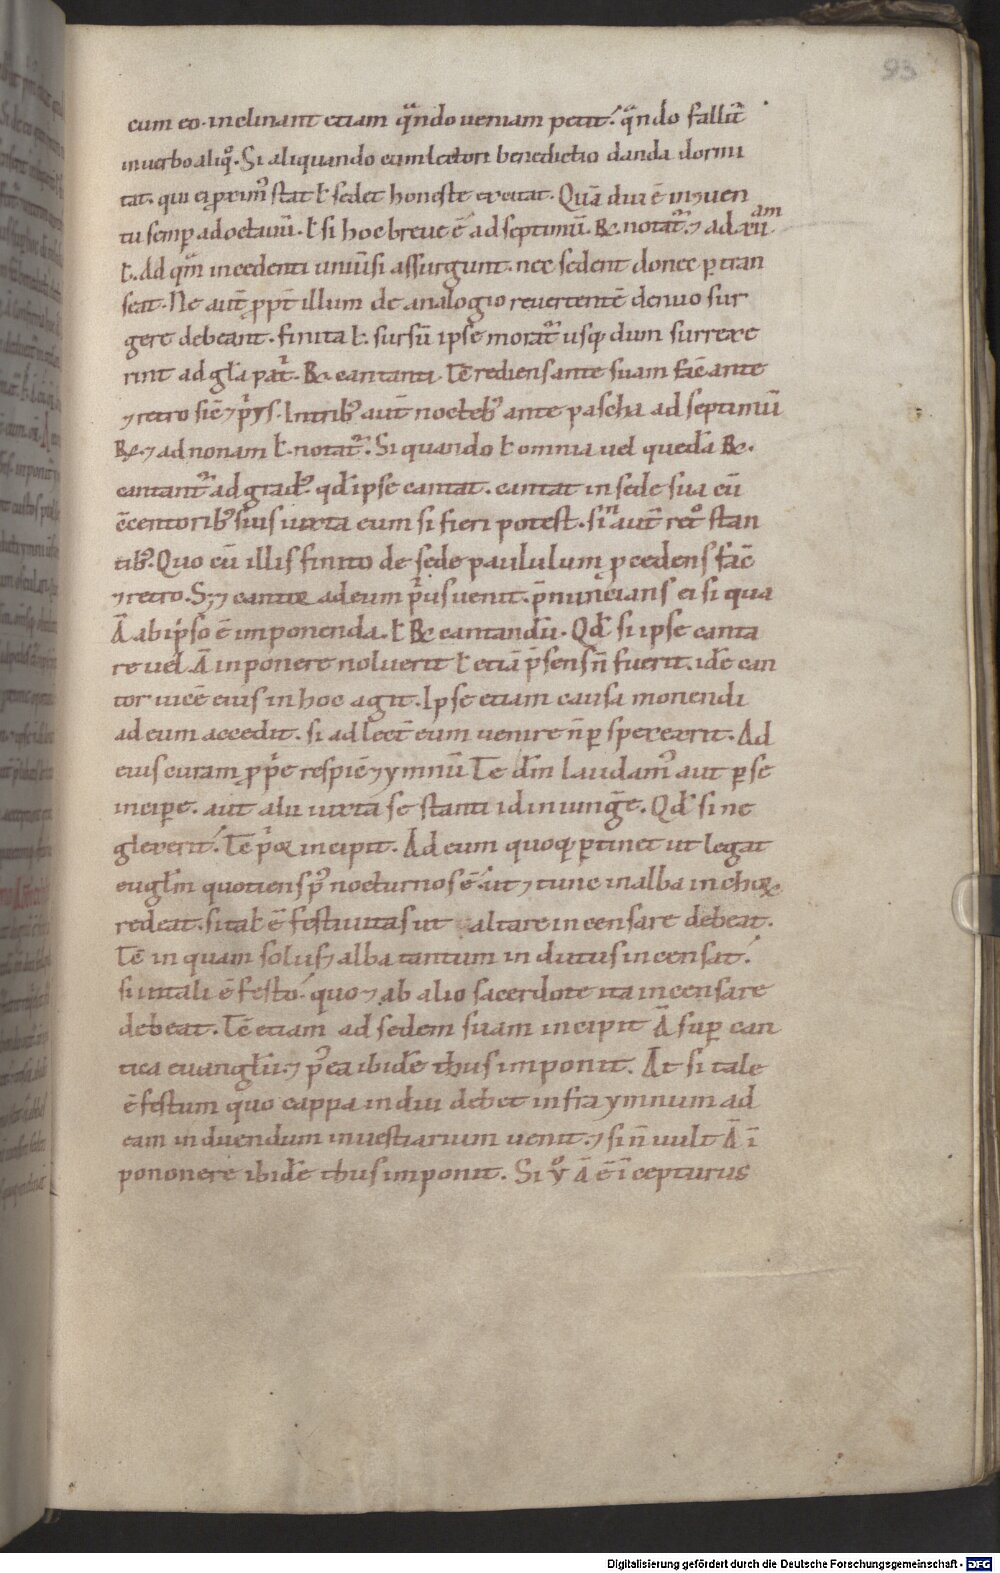 95
cum eo. inclinant etiam qͣndo ueniam petit. qͣndo fallit᷑
in uerbo aliq̊. Si aliquando cum lectori benedictio danda dormi
tat. qui ei ꝓximꝰ stat ł sedet honeste excitat. Quā diu ē in ⁊ uen
tu semꝑ ad octauū. ł si hoc breue ē ad septimū. R̷. notat᷑. ⁊ ad xii.am
ł. Ad qͣm incedenti uniūsi assurgunt. nec sedent donec ꝑtran
seat. Ne aut̄ ꝓpt̄ illum de analogio reuertentē denuo sur
gere debeant. finita ł. sursū ipse morat᷑ usq; dum surrexe
rint ad gła pat᷑. R̷. cantanti. Tē rediens ante suam faē ante
⁊ retro sic̄ ⁊ p᷑ꝯs. In tribꝰ aut̄ noctebꝰ ante pascha ad septimū
R̷. ⁊ ad nonam ł. notat᷑. Si quando ł omnia uel quedā R̷.
cantant᷑ ad gradꝰ. qd̄ ipse cantat. cantat in sede sua cū
c̄centoribꝰ suis iuxta eum si fieri potest. sin̄ aut̄ ret̊ stan
tibꝰ. Quo cū illis finito de sede paululum p̱cedens fac̄
⁊ retro. S⁊⁊ cantor ad eum p᷑us uenit. p̄nuncians ei si qua
Ā ab ipso ē imponenda. ł R̷ cantandū. Qd̄ si ipse canta
re uel Ā inponere noluerit ł etiā p̄sens n̄ fuerit. idē can
tor uicē eius in hoc agit. Ipse etiam causa monendi
ad eum accedit. si ad lect̄ eum uenire n̄ ꝑspexerit. Ad
eius curam ꝓp᷑e respic̄ ⁊ ymnū Te dm̄ laudamꝰ aut ꝑ se
inciꝑe. aut alii iuxta se stanti id iniunḡe. Qd̄ si ne
glexerit. Tē p᷑or incipit. Ad eum quoq; ꝑtinet ut legat
eugłm quotiens pꝰ nocturnos ē. ut ⁊ tunc in alba in choꝝ
redeat. si tał ē festiuitas ut altare incensare debeat.
Tē in quam solus ⁊ alba tantum indutus incensat.
si in tali ē festo. quo ⁊ ab alio sacerdote ita incensare
debeat. Tē etiam ad sedem suam incipit Ā suꝑ can
tica euangłii. ⁊ pꝰea ibidē thus imponit. At si tale
ē festum quo cappa indui debet infra ymnum ad
eam induendum in uestiarium uenit. ⁊ si n̄ uult Ā ī
pononere ibidē thus imponit. Si ṽ Ā ē īcepturus
Digitalisierung gefördert durch die Deutsche Forschungsgemeinschaft - DFG